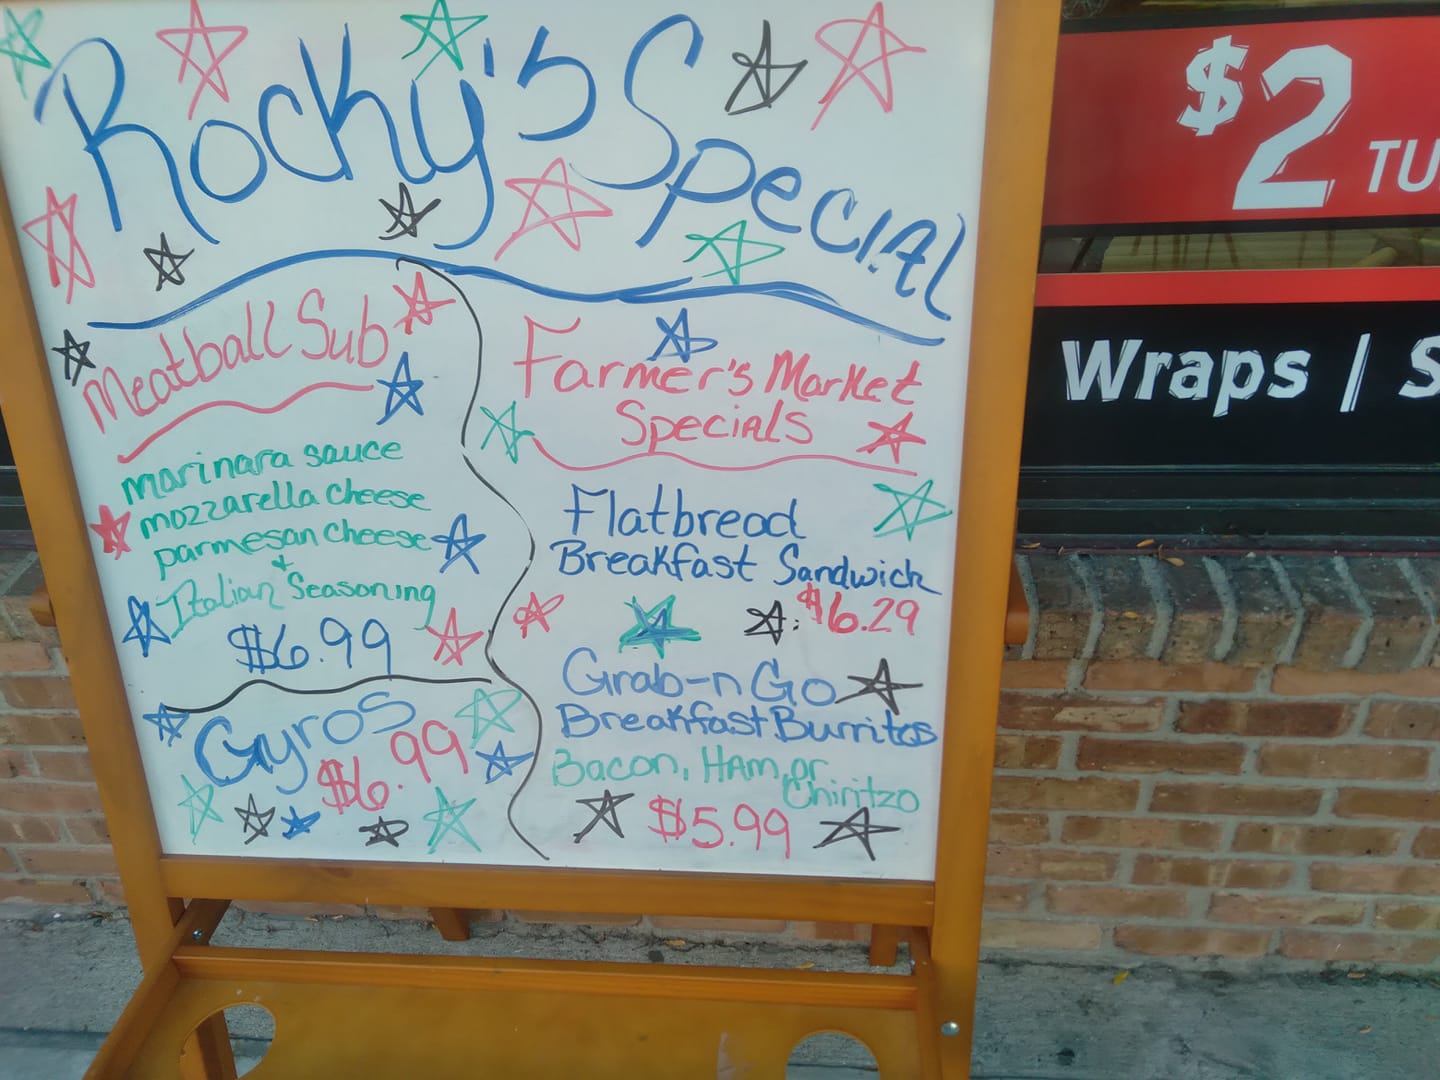 Rocky's Special
Meatball Sub
marinara sauce
mozzarella cheese
parmesan cheese
+
Italian Seasoning
$6.99
Gyros
$6.99
Farmer's Market
Specials
Flatbread
Breakfast Sandwich
$6.29
Grab-n Go
Breakfast Burritos
Bacon, HAM, or
Chiritzo
$5.99
$2 TU
Wraps | S